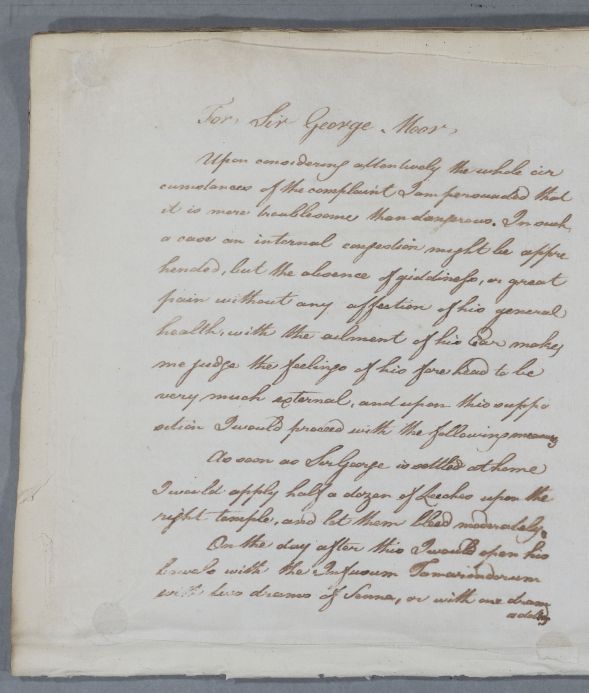 For, Sir George Moor,
Upon considering attentively the whole cir
cumstances of the complaint I am persuaded that
it is more troublesome than dangerous. In such
a case an internal congestion might be appre
hended, but the absence of giddiness, or great
pain without any affection of his general
health, with the ailment of his Ear makes
me judge the feelings of his fore head to be
very much external, and upon this suppo
sition I would proceed with the following measures
As soon as Sir George is settled at home
I would apply half a dozen of Leeches upon the
right temple, and let them bleed moderately.
On the day after this I would open his
bowels with the Infusum Tamarindorum
with two drams of Senna, or with one dram
adding